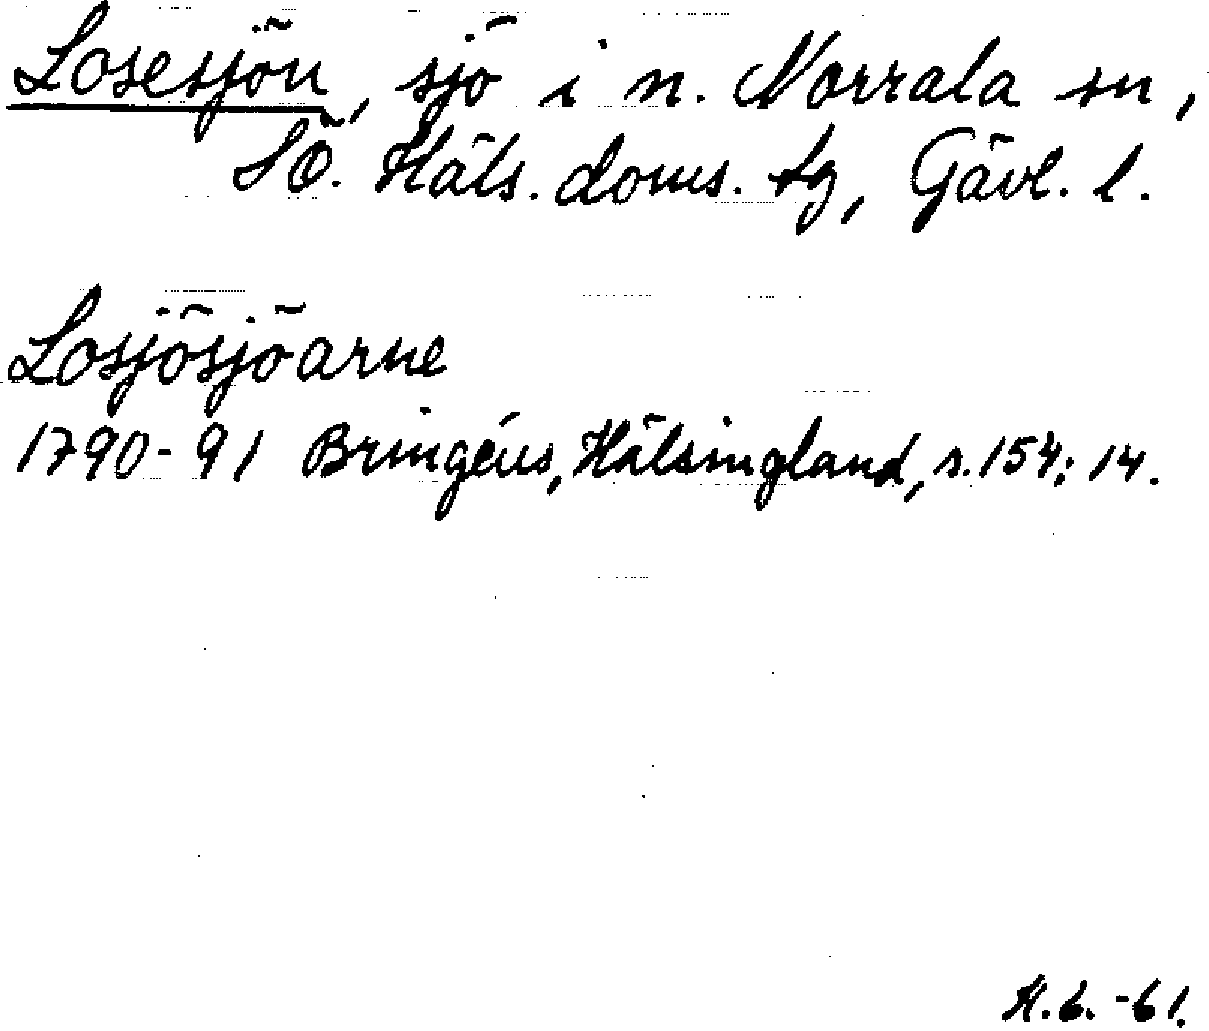 Losesjön, sjö i n. Norrala sn,
SÖ. Häls. doms. tg, Gävl. l.
Losjösjöarne
1790-91 Bringéus, Hälsingland, s. 154: 14.
H.b. -61.